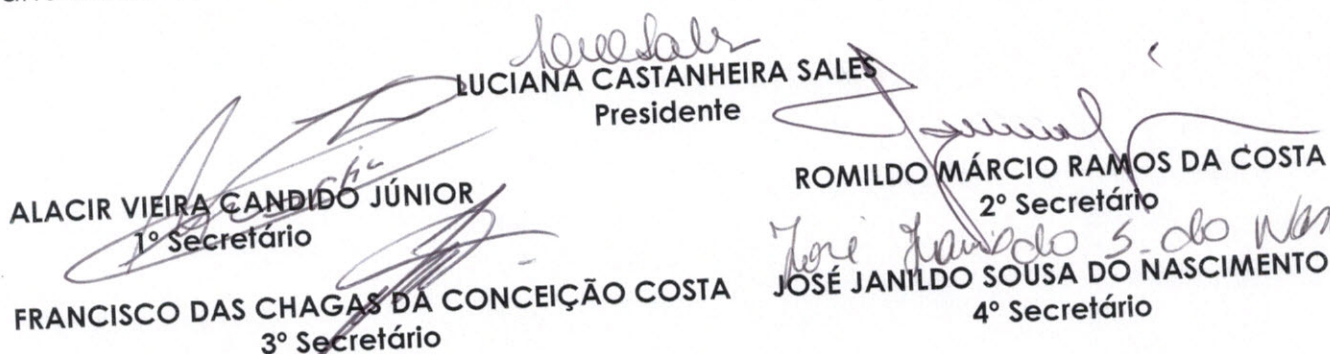 LUCIANA CASTANHEIRA SALES
Presidente
ALACIR VIEIRA CANDIDO JÚNIOR
1º Secretário
ROMILDO MÁRCIO RAMOS DA COSTA
2º Secretário
José Janildo S. do Nas
FRANCISCO DAS CHAGAS DA CONCEIÇÃO COSTA
3º Secretário
JOSÉ JANILDO SOUSA DO NASCIMENTO
4º Secretário